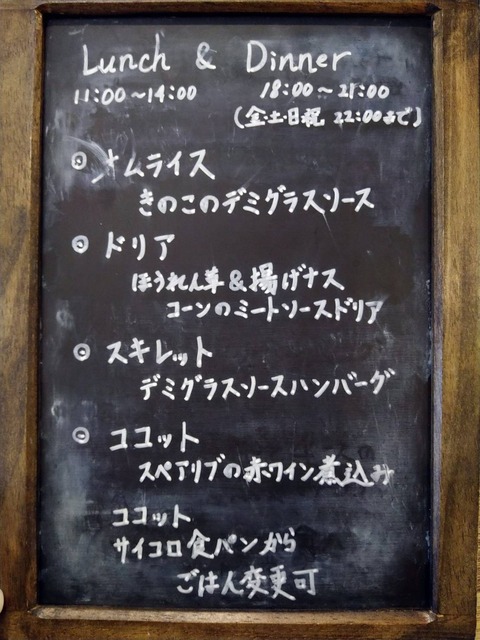 Lunch & Dinner
11:00～14:00 18:00～21:00
(金・土・日祝 22:00まで)
◎ オムライス
きのこのデミグラスソース
◎ ドリア
ほうれん草&揚げナス
コーンのミートソースドリア
◎ スキレット
デミグラスソースハンバーグ
◎ ココット
スペアリブの赤ワイン煮込み
ココット
サイコロ食パンから
ごはん変更可